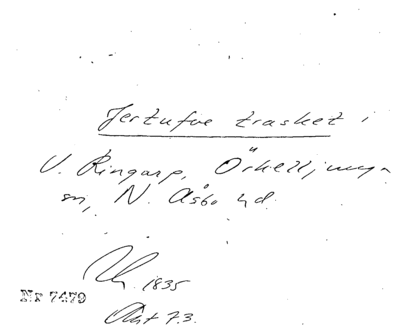 Jertufve trasket i
V. Ringarp, Örkelljunga
sn, N. Åsbo hd.
1835
Nr 7479
Akt 73.